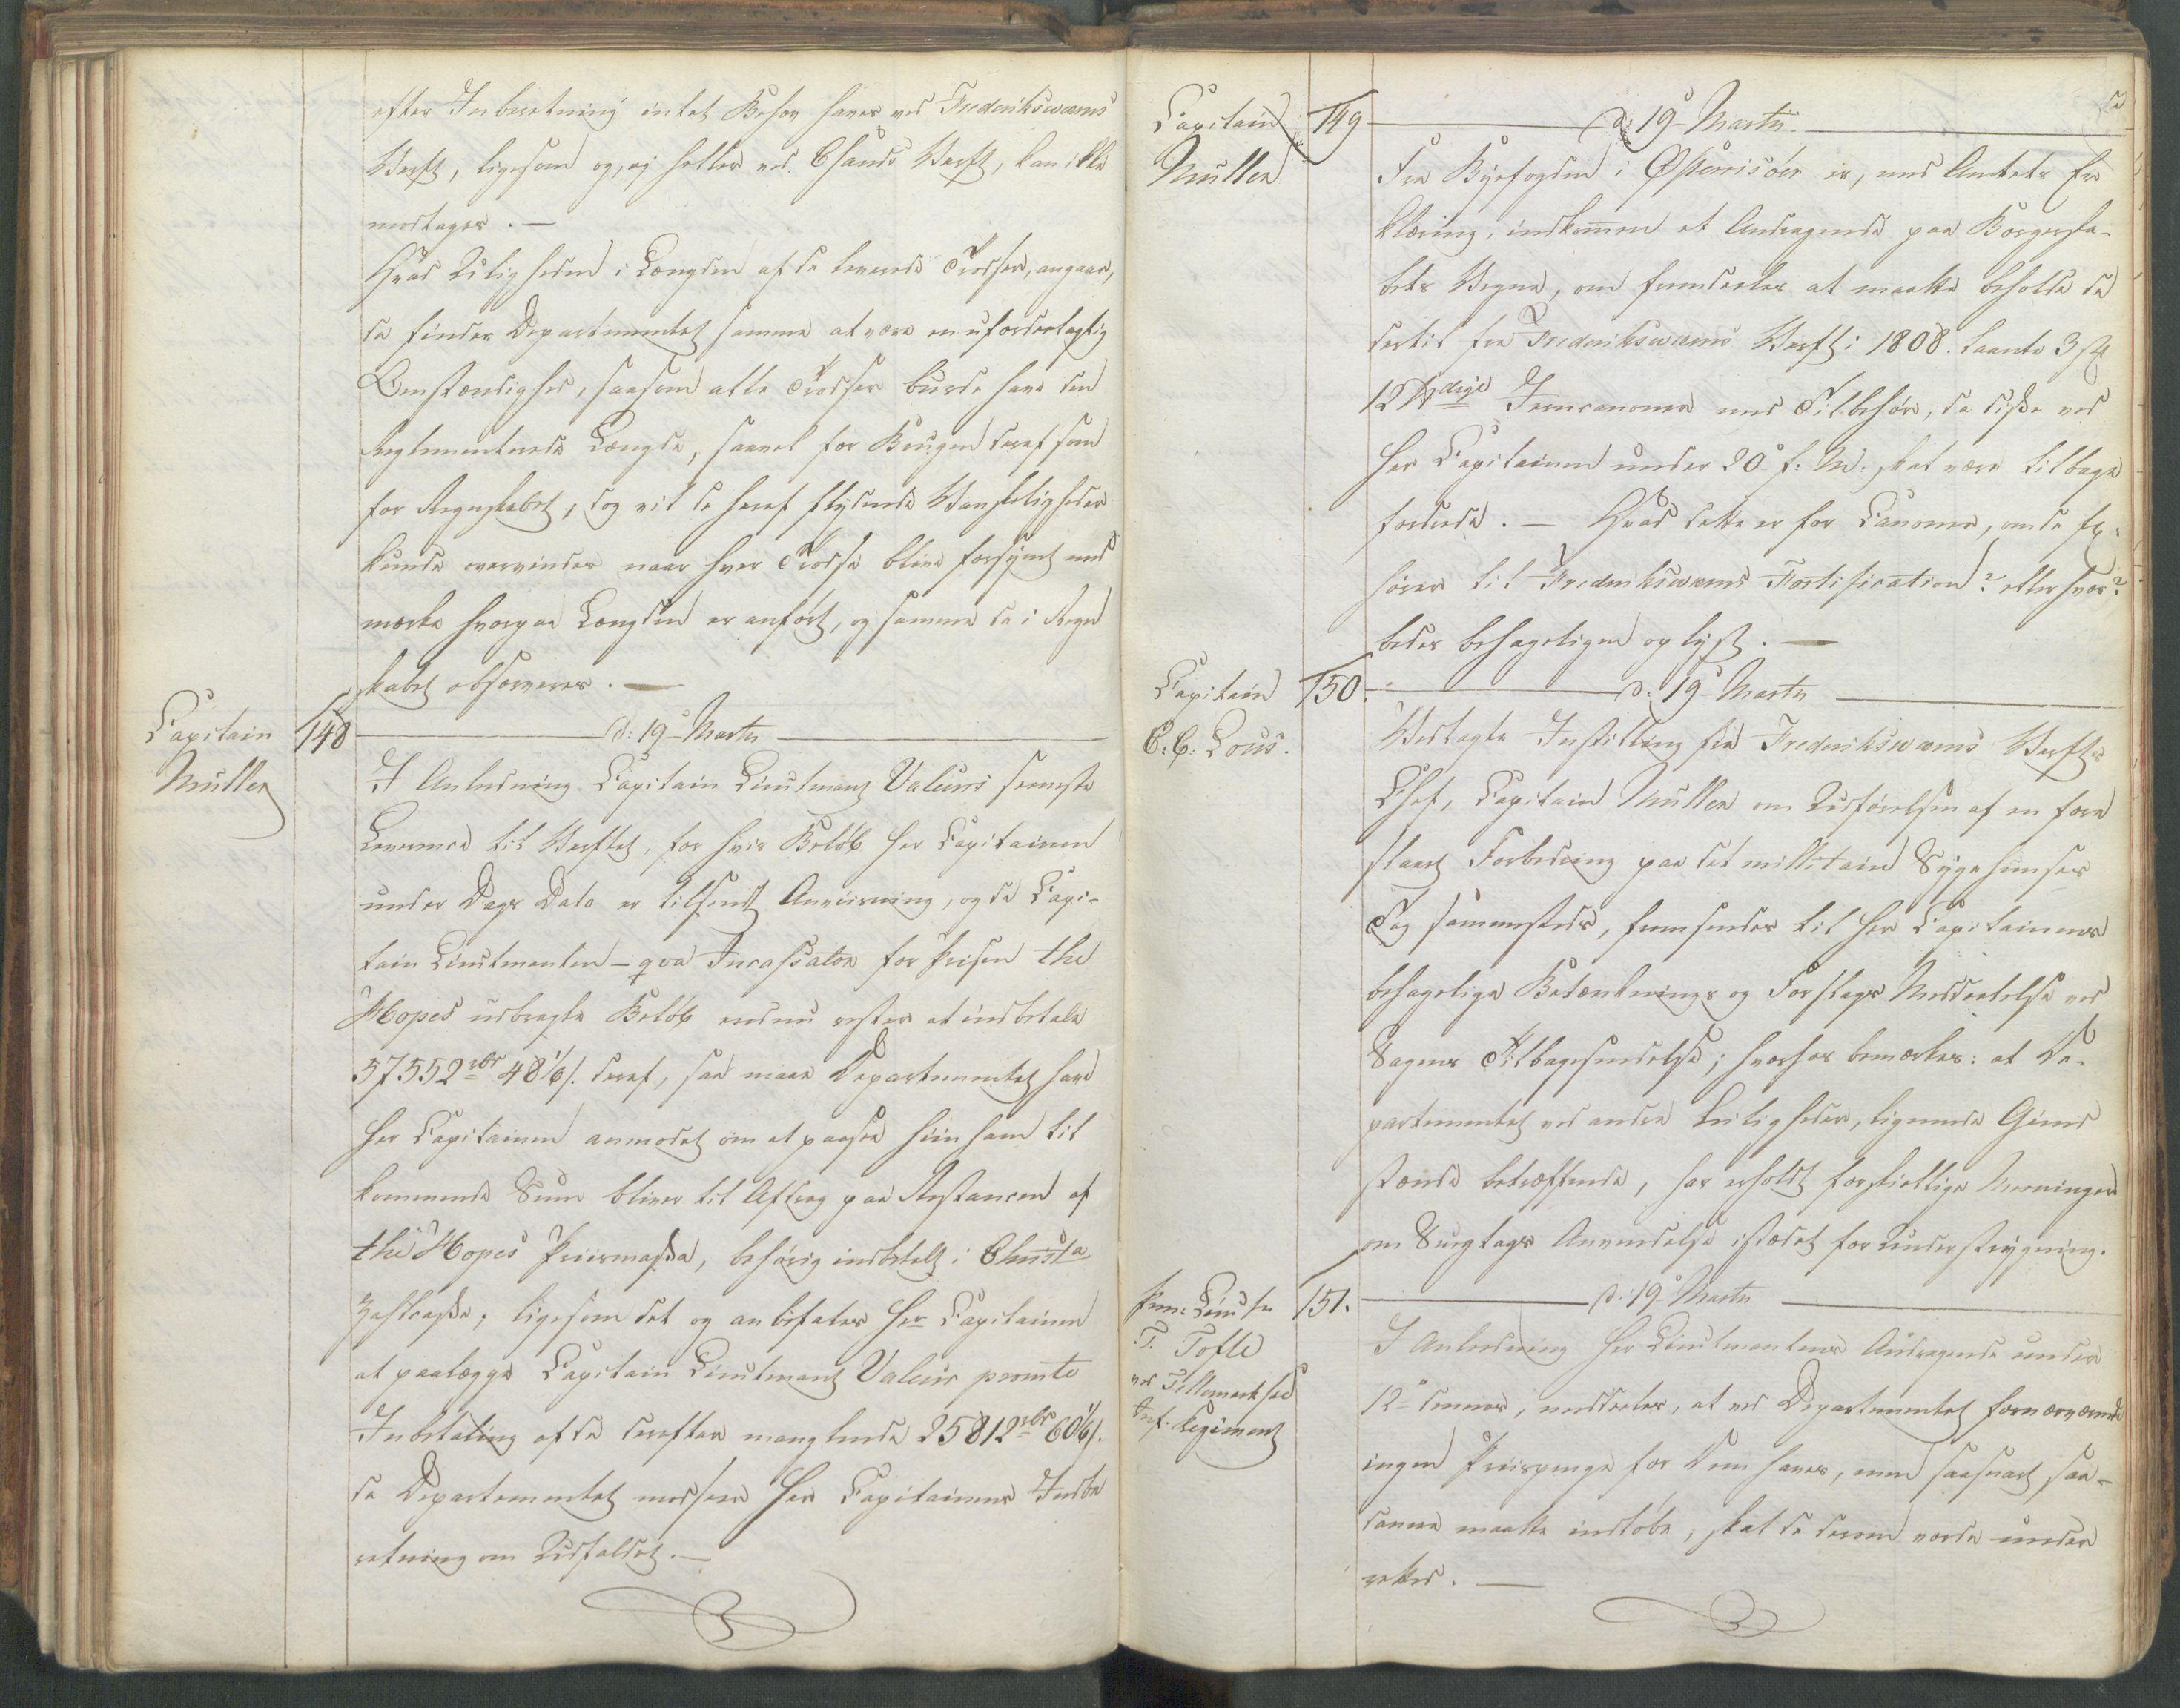 efter Indberetning intet Behov haves ved Frederiksværns
Værft, ligesom og, ej heller ved Chsands Værft, kan ikke
modtages. —
Hvad Uligheden i Længden af de leverede Trodser, angaar,
da finder Departementet samme at være en ufordeelagtig
Omstændighed, saasom alle Trodser burde have den
Reglementerede Længde, saavel for Brugen deraf som
for Regnskabet, dog vil de heraf flydende Vanskeligheder
kunde overvindes naar hver Trodse blive forsynet med
mærke hvorpaa Længden er anført, og samme da i Regn
skabet observeres. —
Capitain
Müller
148
d: 19 Martii
I Anledning Capitain Lieutnant Valeurs seeneste
Leverance til Værftet, for hvis Beløb Hr Capitainen
under Dags Dato er tilsendt Anviisning, og da Capi-
tain Lieutnanten – qva Incassator for Prisen the
Hopes udbragte Beløb endnu rester at indbetale
57552 rbr 48 1/6 s. deraf, saa maae Departementet have
Hr Capitainen anmodet om at paasee hiin ham til
kommende Sum bliver til Afdrag paa Restancen af
the Hopes Priismasse, behørig indbetalt i Chrsta
Zahlkasse; ligesom det og anbefales Hr Capitainen
at paalægge Capitain Lieutnant Valeur promte
Indbetaling af de derefter manglende 25812 rbr 60 1/6 s.
da Departementet modseer Hr Capitainens Indbe
retning om Udfaldet. —
Capitain
Müller
149
d: 19 Martii
Fra Byefogden i Østerrisöer er, med Amtets Er
klæring, indkommen et Andragende paa Borgerska-
bets Vegne, om fremdeeles at maatte beholde de
dertil fra Frederiksværns Værft i 1808. laante 3 st
12 ℔dige Jerncanoner med Tilbehør, da disse ved
Hr Capitainen under 20 f: M: skal være tilbage
fordrede. — Hvad dette er for Canoner, om de hen-
hører til Frederiksværns Fortification? eller hvor?
bedes behageligen oplyst. —
Capitain
C: C: Lous.
150.
d: 19 Martii
Vedlagte Indstilling fra Frederiksværns Værfts
Chef, Capitain Müller om Udførelsen af en fore
slaaet Forbedring paa det militaire Sygehuuses
Tag sammesteds, fremsendes til Hr Capitainens
behagelige Betænknings og Forslags Meddeelelse ved
Sagens Tilbagesendelse; hvorhos bemærkes: at De-
partementet ved andre Leiligheder, lignende Gien-
stande betræffende, har erholdt forskiellige Meeninger
om Svøgtags Anvendelse istædet for Understrygning.
Prem: Lieutn
T. Tofte
ved Tellemarkske
Inf. Regiment
151.
d: 19 Martii
I Anledning Hr Lieutnantens Andragende under
12 dennes, meddeeles, at ved Departementet for nærværende
ingen Priispenge for Dem haves, men saasnart saa-
danne maatte indløbe, skal De derom vorde under
rettet. —